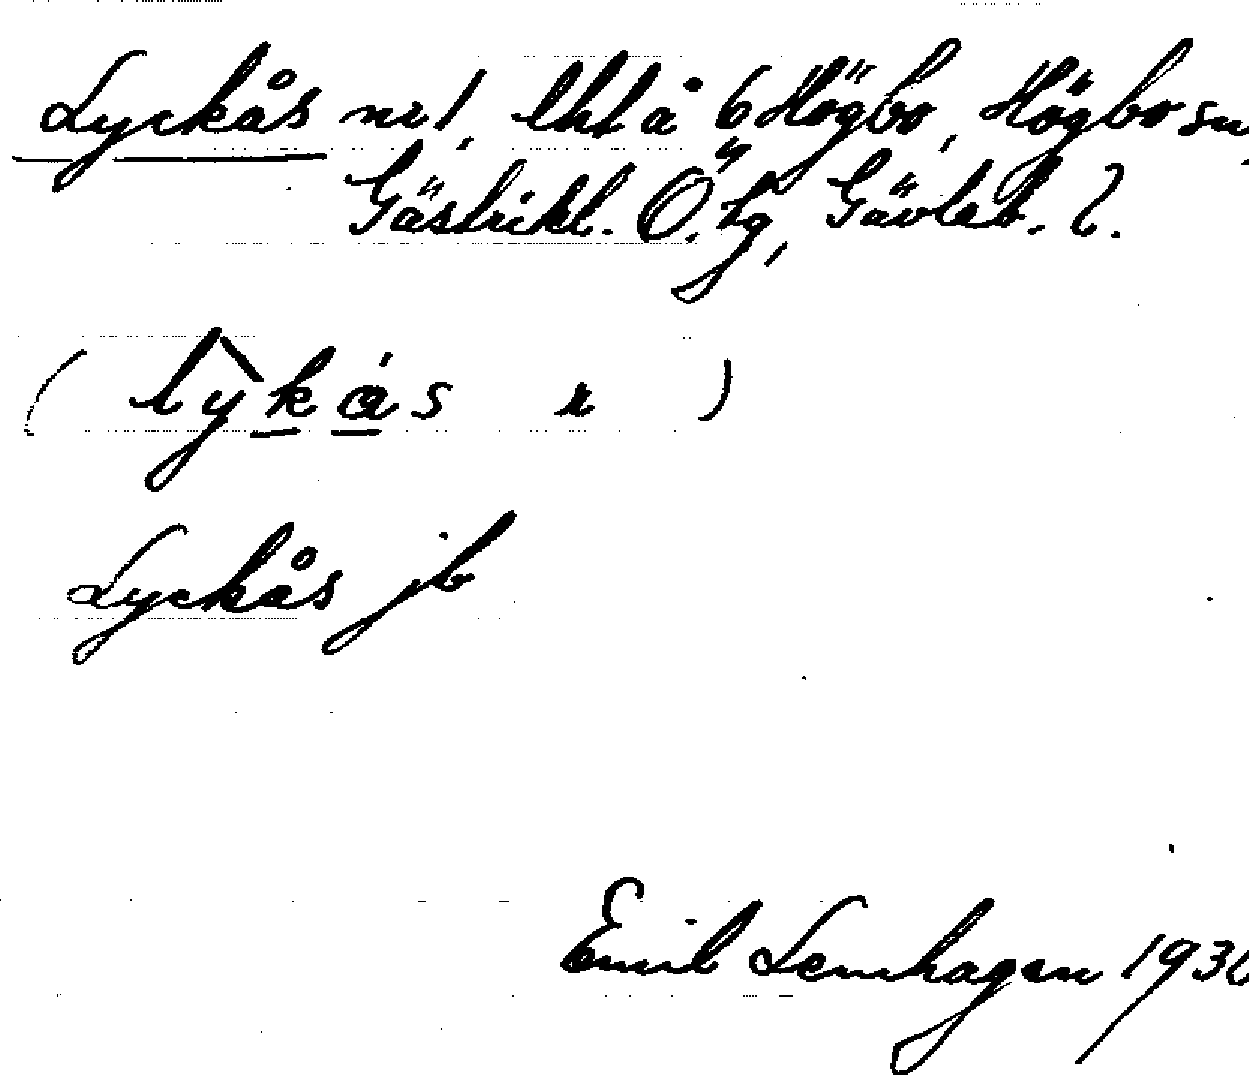 Lyckås nr 1, lht å 6 Högbo, Högbo sn,
Gästrikl. Ö. tg, Gävleb. l.
( lykås n )
Lyckås jb
Emil Lemhagen 193